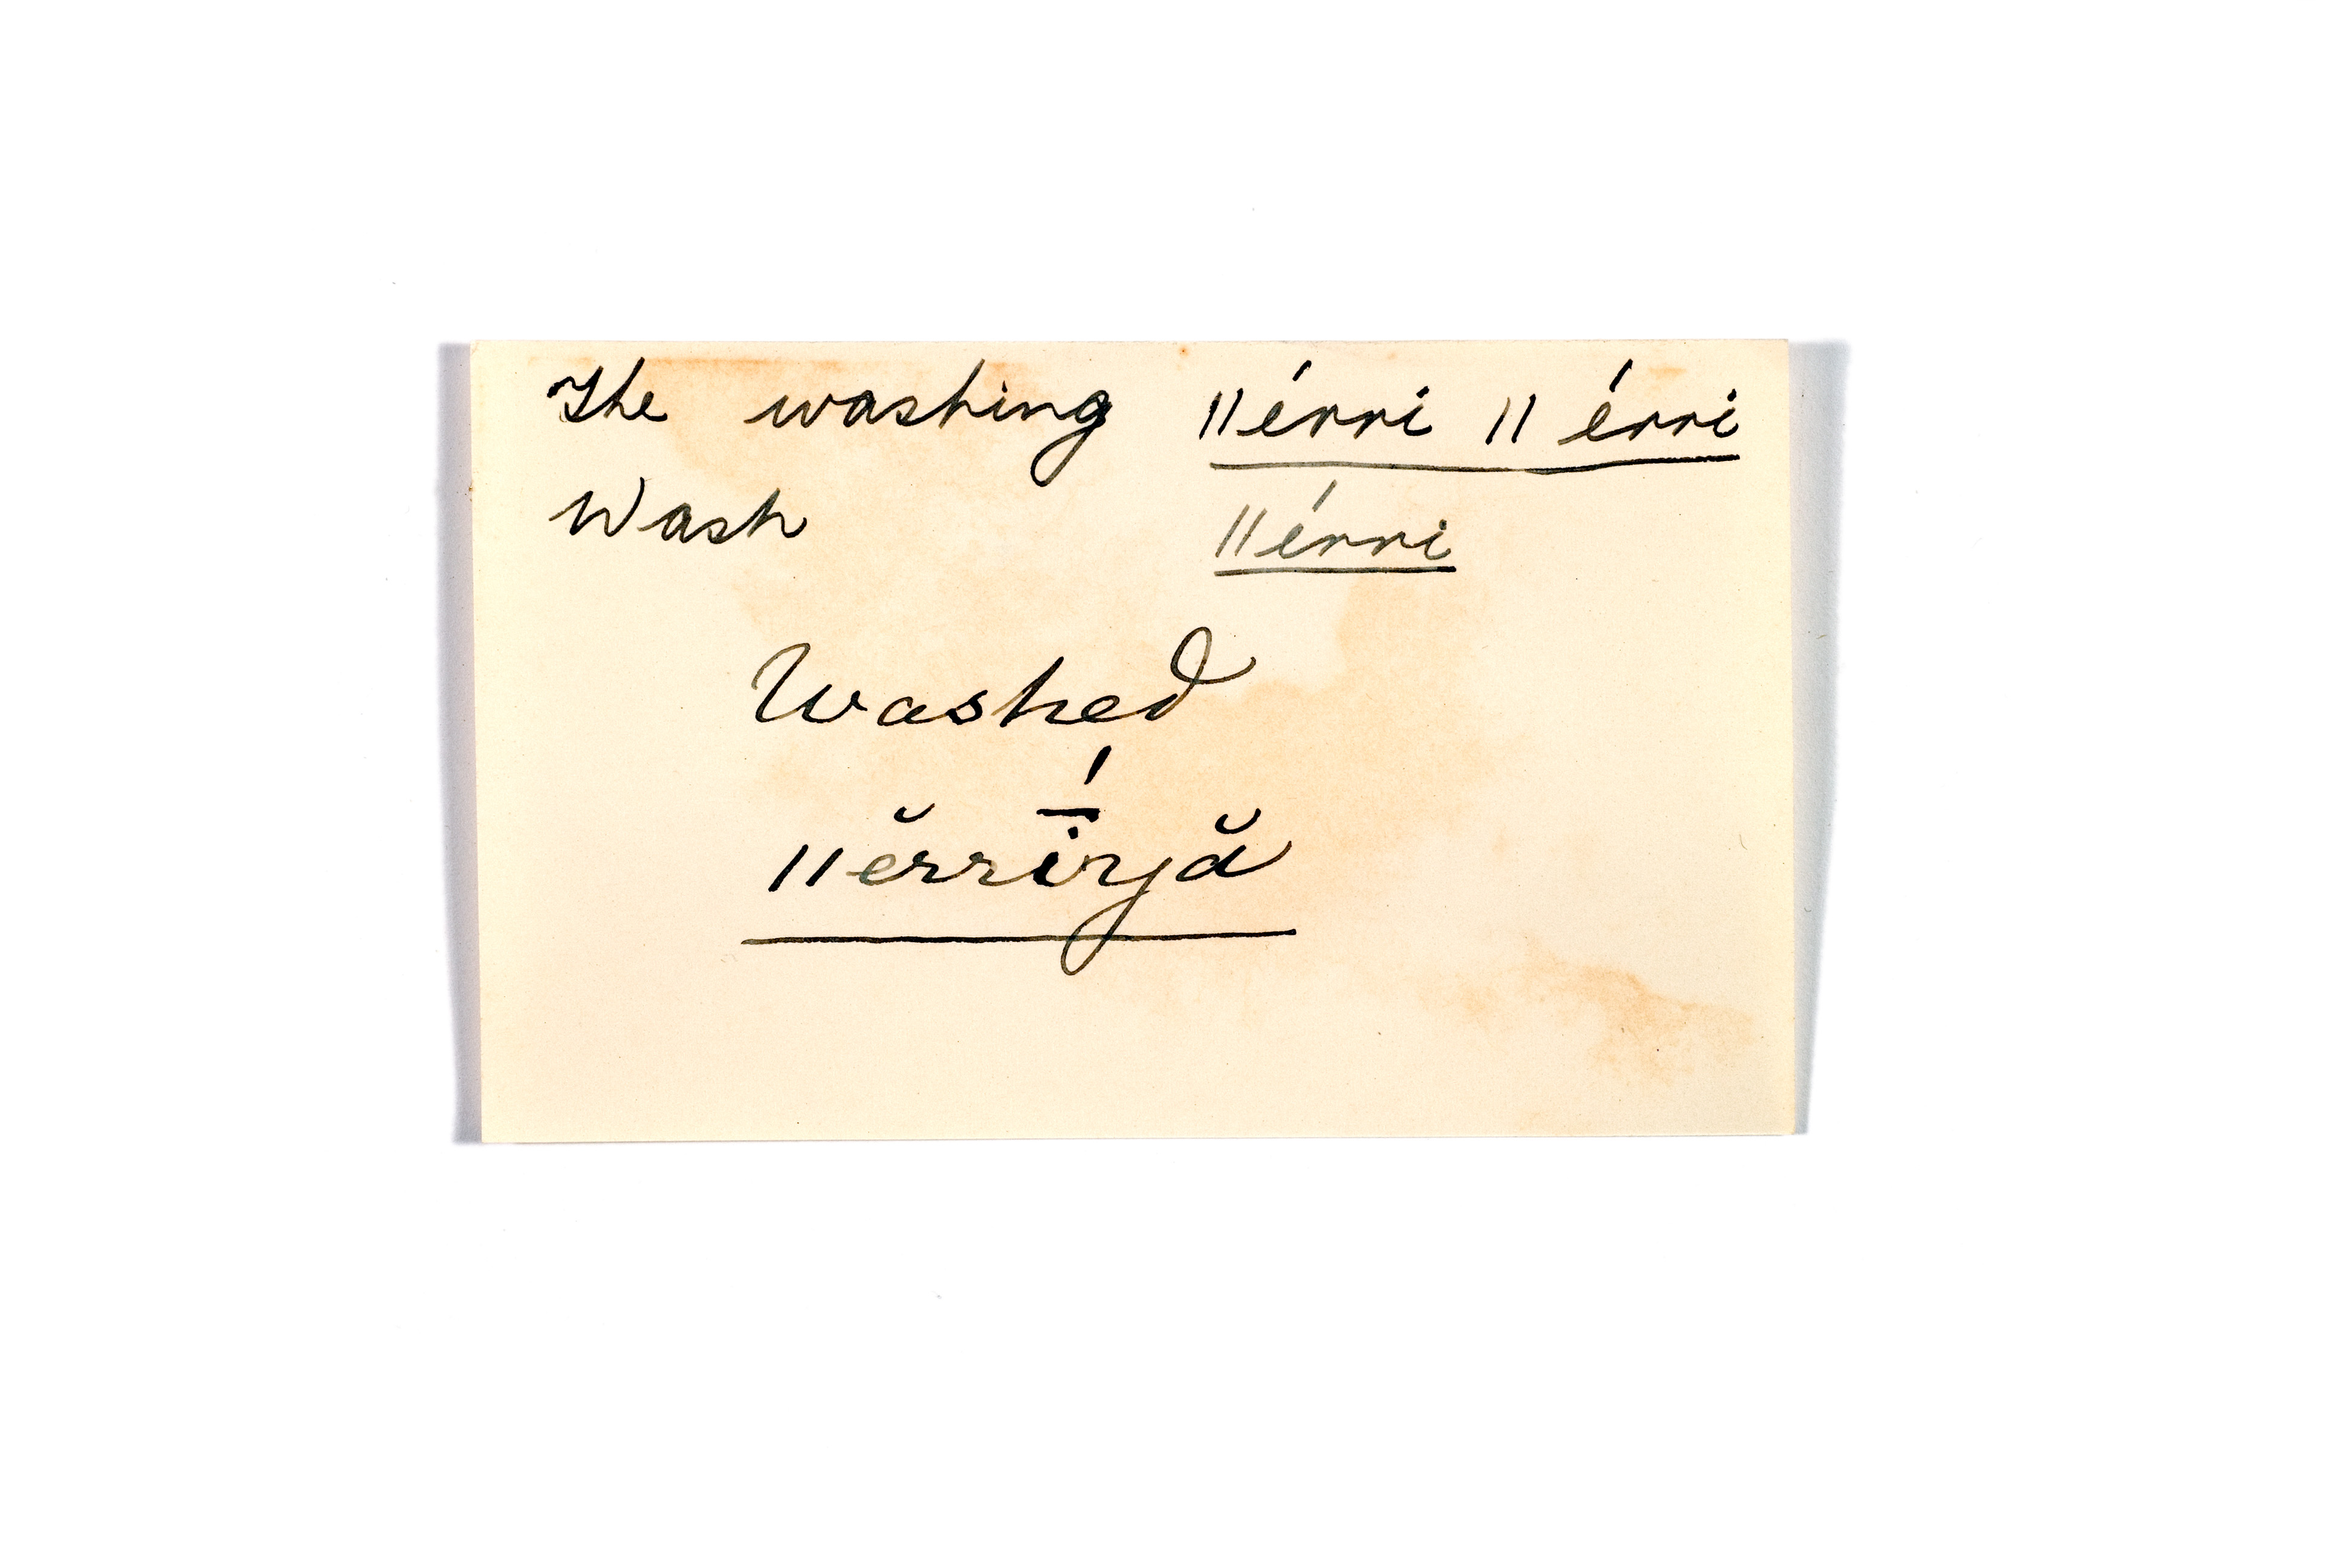 The washing ǁérri ǁ érri
Wash ǁérri
Washed
ǁĕrrī́yă